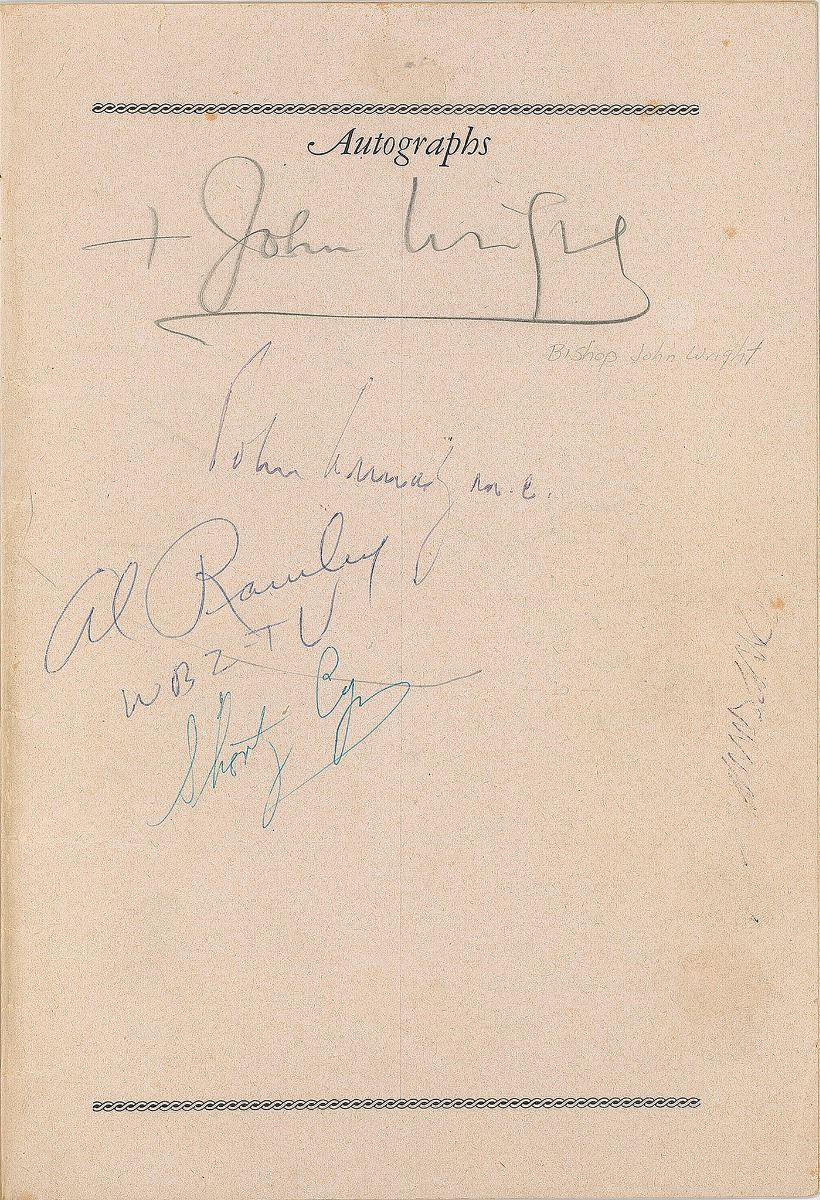 Autographs
+ John Wright
Bishop John Wright
John Kennedy m.c.
Al Rawley
WBZ-TV
Shorty